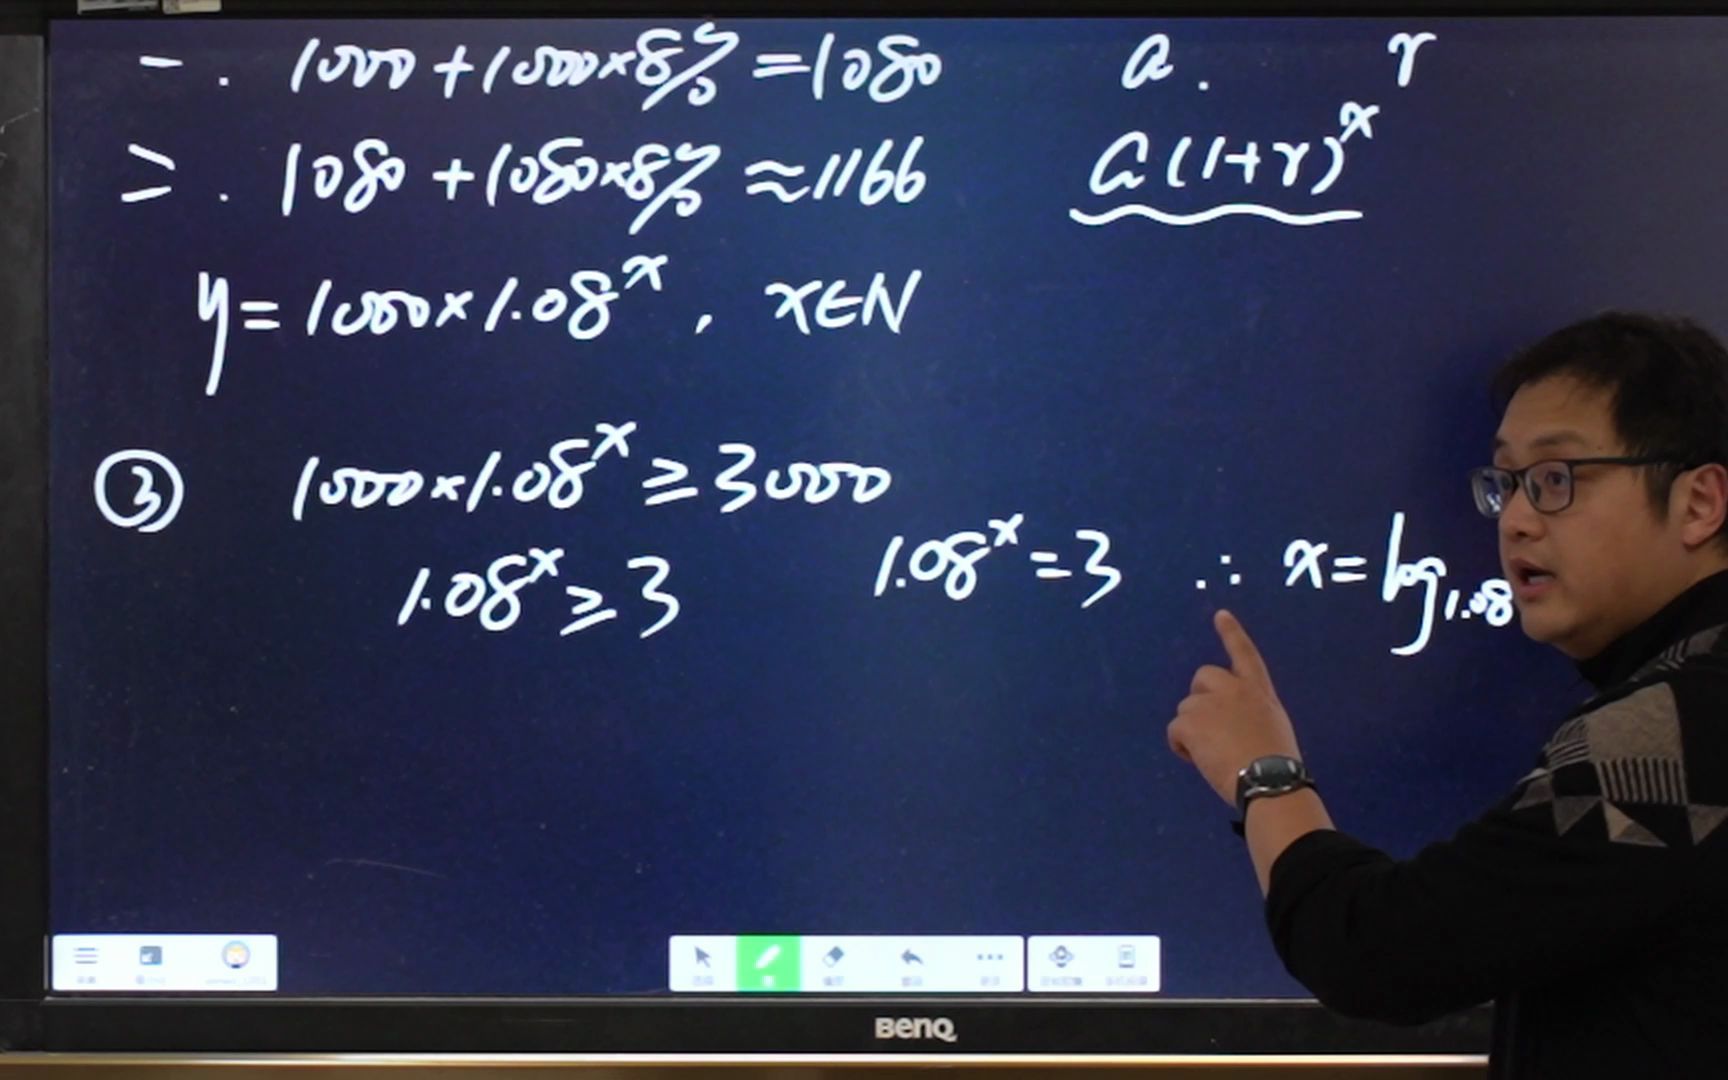 一. 1000+1000×8%=1080 a. r
二. 1080+1080×8%≈1166 a(1+r)^x
y=1000×1.08^x, x∈N
③ 1000×1.08^x≥3000
1.08^x≥3 1.08^x=3 ∴ x=log_1.08
BenQ